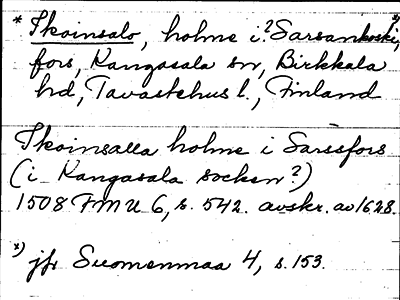 * Ikoinsalo, holme i? Sarsankoski, *)
fors, Kangasala sn, Birkkala
hd, Tavastehus l., Finland
Ikoinsalla holme i Sarssfors
(i Kangasala socken?)
1508 FMU 6, s. 542. avskr. av 1628.
*) jfr Suomenmaa 4, s. 153.